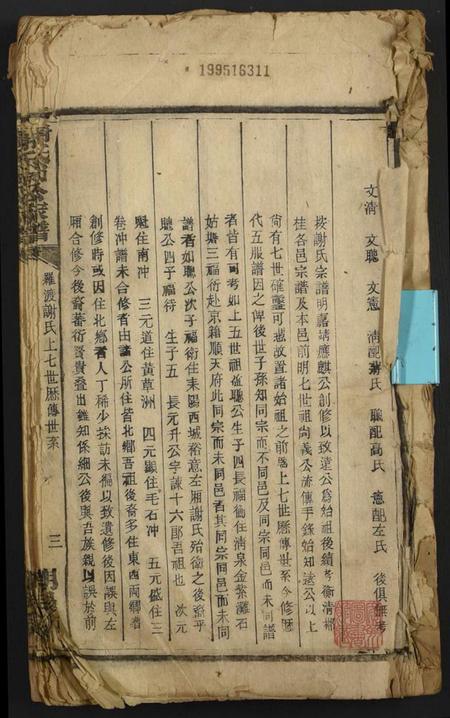 199516311
文清 文聰 文憲 清配蔣氏 聰配高氏 憲配左氏 後俱無考
按謝氏宗譜明嘉靖應麒公創修以致遠公為始祖後續考衡清郴
桂各邑宗譜及本邑前明七世祖尚義公流傳手錄始知遠公以上
尚有七世確鑿可據故置諸始祖之前曰上七世歷傳世系今修歷
代五服譜因之俾後世子孫知同宗而不同邑及同宗同邑而未同譜
者皆有可考如上五世祖聰公生子四長福 住清泉金紫灘石
姑塘三福衍赴京籍順天府此同宗而未同邑者其同宗同邑而未同
譜者如聰公次子福衛住耒陽西城裕意左廂謝氏殆衛之後裔乎
聰公四子福待 生子五 長元升公字諫十六郎吾祖也 次元
魁住南沖 三元道住黃草洲 四元顯住毛石沖 五元盛住三
卷沖譜未合修者由諸公所住皆北鄉吾祖後裔多住東西兩鄉者
創修時或因住北鄉者人丁稀少採訪未備以致遺修後因誤與左
廂合修今後裔蕃衍賢貴疊出雖知係細公後與吾族親以誤於前
羅渡謝氏上七世歷傳世系
三